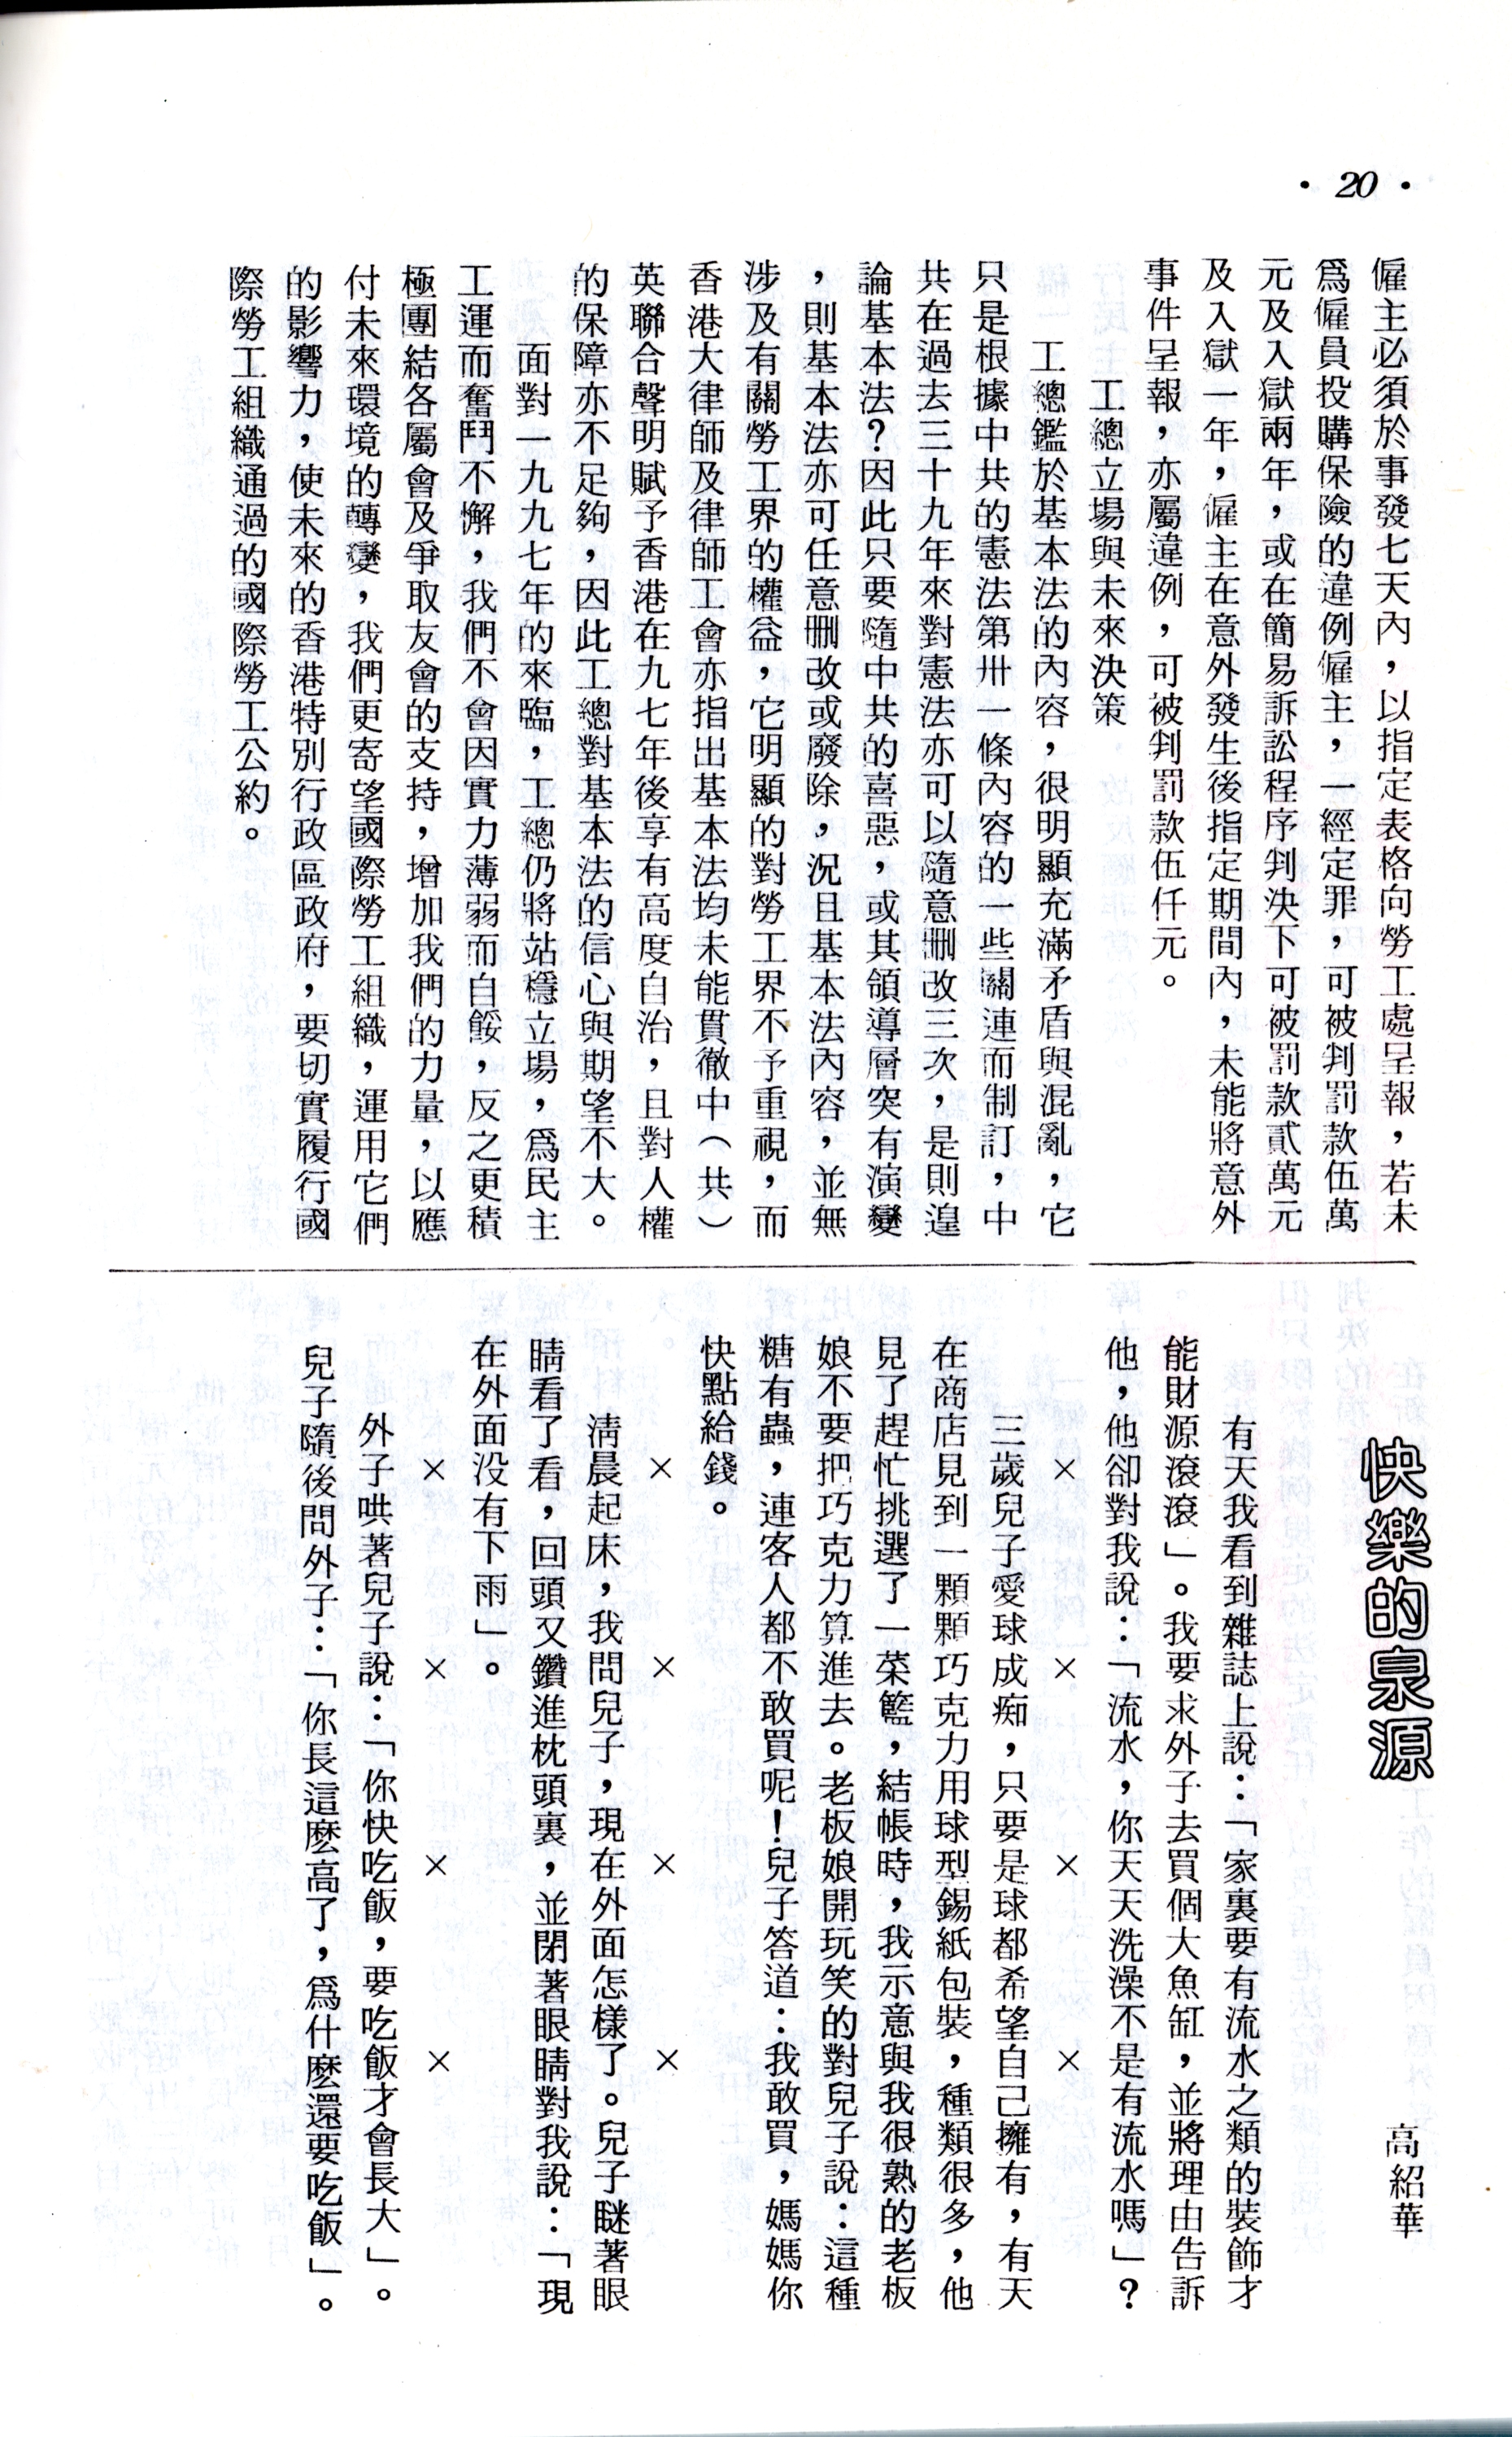 · 20 ·
僱主必須於事發七天內，以指定表格向勞工處呈報，若未
爲僱員投購保險的違例僱主，一經定罪，可被判罰款伍萬
元及入獄兩年，或在簡易訴訟程序判決下可被罰款貳萬元
及入獄一年，僱主在意外發生後指定期間內，未能將意外
事件呈報，亦屬違例，可被判罰款伍仟元。
工總立場與未來決策
工總鑑於基本法的內容，很明顯充滿矛盾與混亂，它
只是根據中共的憲法第卅一條內容的一些關連而制訂，中
共在過去三十九年來對憲法亦可以隨意刪改三次，是則遑
論基本法？因此只要隨中共的喜惡，或其領導層突有演變
，則基本法亦可任意刪改或廢除，況且基本法內容，並無
涉及有關勞工界的權益，它明顯的對勞工界不予重視，而
香港大律師及律師工會亦指出基本法均未能貫徹中（共）
英聯合聲明賦予香港在九七年後享有高度自治，且對人權
的保障亦不足夠，因此工總對基本法的信心與期望不大。
面對一九九七年的來臨，工總仍將站穩立場，爲民主
工運而奮鬥不懈，我們不會因實力薄弱而自餒，反之更積
極團結各屬會及爭取友會的支持，增加我們的力量，以應
付未來環境的轉變，我們更寄望國際勞工組織，運用它們
的影響力，使未來的香港特別行政區政府，要切實履行國
際勞工組織通過的國際勞工公約。
快樂的泉源
高紹華
有天我看到雜誌上說：「家裏要有流水之類的裝飾才
能財源滾滾」。我要求外子去買個大魚缸，並將理由告訴
他，他卻對我說：「流水，你天天洗澡不是有流水嗎」？
× × × ×
三歲兒子愛球成痴，只要是球都希望自己擁有，有天
在商店見到一顆顆巧克力用球型錫紙包裝，種類很多，他
見了趕忙挑選了一菜籃，結帳時，我示意與我很熟的老板
娘不要把巧克力算進去。老板娘開玩笑的對兒子說：這種
糖有蟲，連客人都不敢買呢！兒子答道：我敢買，媽媽你
快點給錢。
× × × ×
清晨起床，我問兒子，現在外面怎樣了。兒子瞇著眼
睛看了看，回頭又鑽進枕頭裏，並閉著眼睛對我說：「現
在外面没有下雨」。
× × × ×
外子哄著兒子說：「你快吃飯，要吃飯才會長大」。
兒子隨後問外子：「你長這麽高了，爲什麽還要吃飯」。